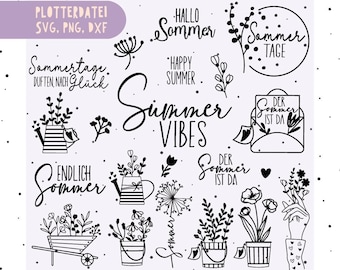 PLOTTERDATEI
SVG, PNG, DXF
HALLO
Sommer
Sommer
TAGE
Sommertage
DUFTEN, NACH
Glück
HAPPY
SUMMER
Summer
VIBES
DER
Sommer
IST DA
ENDLICH
Sommer
DER
Sommer
IST DA
Sommer